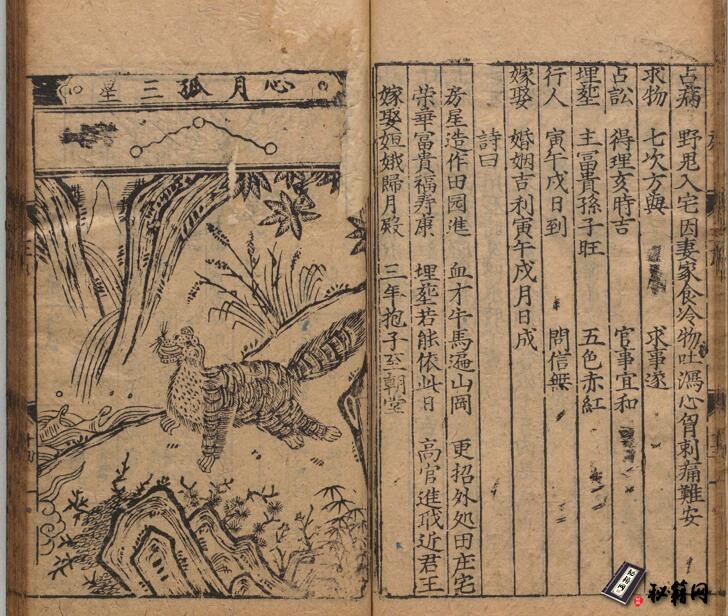 占病 野鬼入宅因妻家食冷物吐瀉心胷刺痛難安
求物 七次方與 求事遂
占訟 得理亥時吉 官事宜和
埋塟 主冨貴孫子旺 五色赤紅
行人 寅午戌日到 問信無
嫁娶 婚姻吉利寅午戌月日成
詩曰
房星造作田园進 血才牛馬遍山岡 更招外処田庄宅
荣華冨貴福寿康 埋塟若能依此日 高官進職近君王
嫁娶姮娥歸月殿 三年抱子至朝堂
心月狐三星
秘籍网